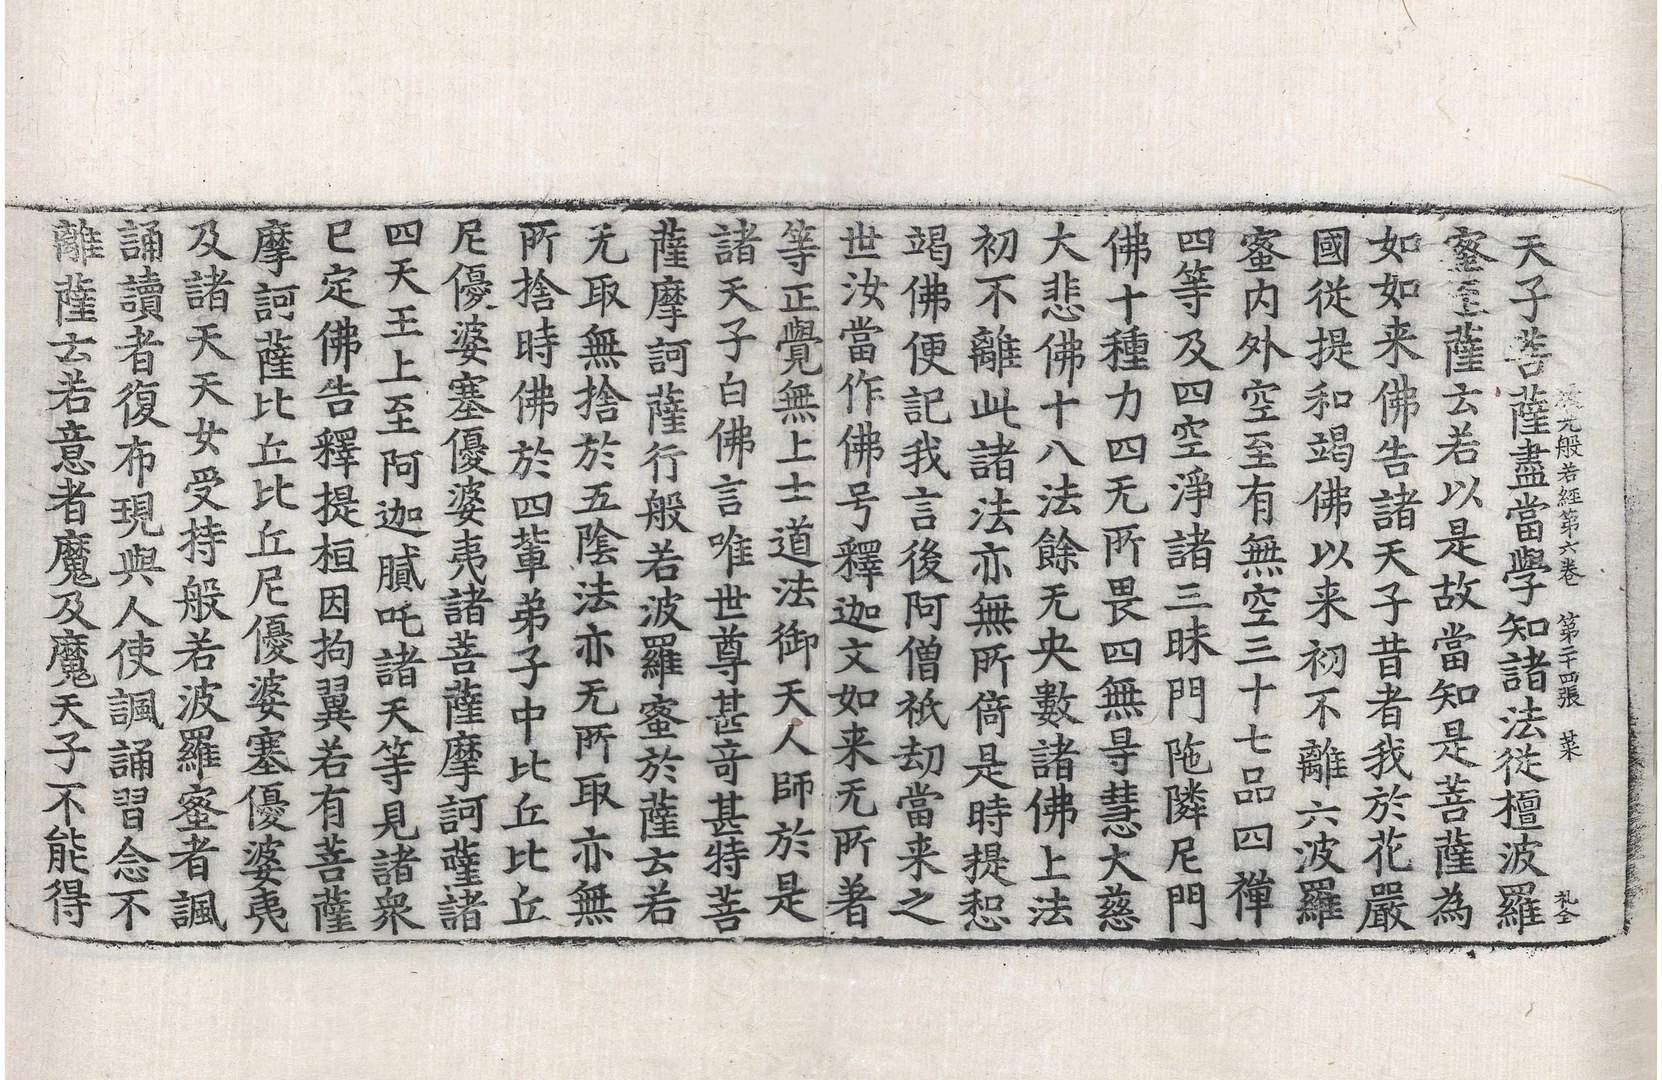 天子菩薩盡當學知諸法從檀波羅
蜜至薩云若以是故當知是菩薩為
如如来佛告諸天子昔者我於花嚴
國從提和竭佛以来初不離六波羅
蜜内外空至有無空三十七品四禪
四等及四空淨諸三昧門陁隣尼門
佛十種力四无所畏四無㝵慧大慈
大悲佛十八法餘无央數諸佛上法
初不離此諸法亦無所倚是時提惒
竭佛便記我言後阿僧祇劫當来之
世汝當作佛号釋迦文如来无所著
等正覺無上士道法御天人師於是
諸天子白佛言唯世尊甚竒甚特菩
薩摩訶薩行般若波羅蜜於薩云若
无取無捨於五陰法亦无所取亦無
所捨時佛於四軰弟子中比丘比丘
尼優婆塞優婆夷諸菩薩摩訶薩諸
四天王上至阿迦膩吒諸天等見諸衆
已定佛告釋提桓因拘翼若有菩薩
摩訶薩比丘比丘尼優婆塞優婆夷
及諸天天女受持般若波羅蜜者諷
誦讀者復布現與人使諷誦習念不
離薩云若意者魔及魔天子不能得
光般若經第六卷 第二十四張 菜 礼全